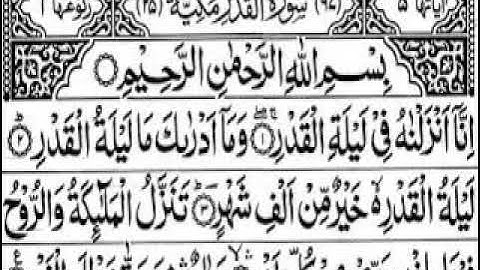 اٰیاتہا ۵ (۹۷) سُوْرَۃُ الْقَدْرِ مَكِّیَّۃٌ (۲۵) رکوعہا ۱
بِسْمِ اللّٰهِ الرَّحْمٰنِ الرَّحِیْمِ ۝
اِنَّاۤ اَنْزَلْنٰهُ فِیْ لَیْلَةِ الْقَدْرِ ۝۱ وَمَاۤ اَدْرٰىكَ مَا لَیْلَةُ الْقَدْرِ ۝۲
لَیْلَةُ الْقَدْرِ ۙ خَیْرٌ مِّنْ اَلْفِ شَهْرٍ ۝۳ تَنَزَّلُ الْمَلٰٓىِٕكَةُ وَالرُّوْحُ